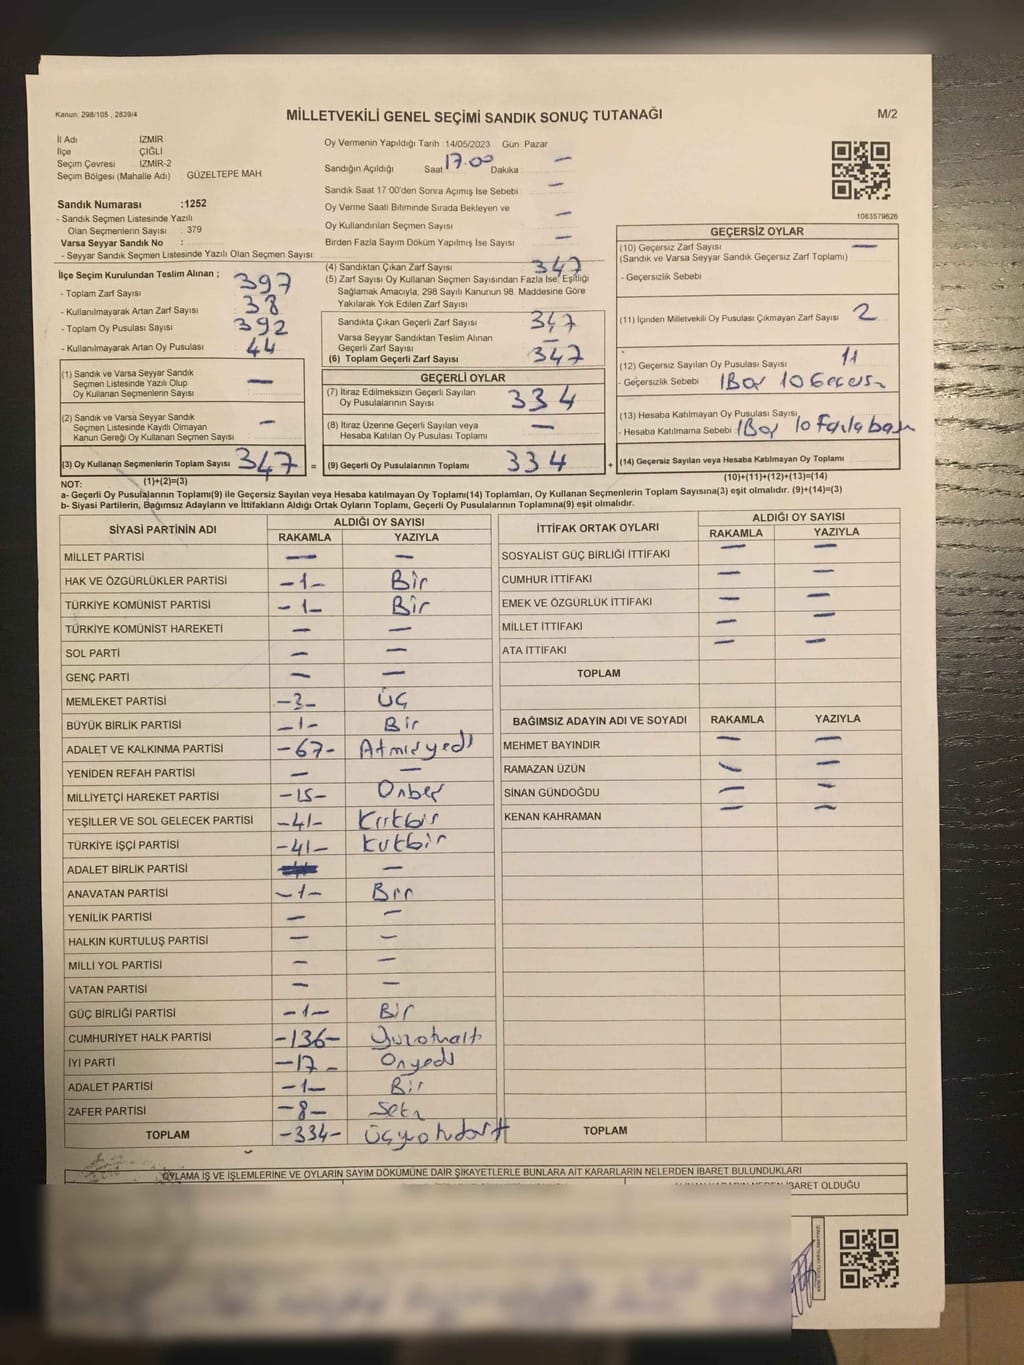 Kanun: 298/105 , 2839/4
MİLLETVEKİLİ GENEL SEÇİMİ SANDIK SONUÇ TUTANAĞI
M/2
İl Adı : İZMİR
İlçe : ÇİĞLİ
Seçim Çevresi : İZMİR-2
Seçim Bölgesi (Mahalle Adı) GÜZELTEPE MAH.
Sandık Numarası :1252
- Sandık Seçmen Listesinde Yazılı
Olan Seçmenlerin Sayısı : 379
Varsa Seyyar Sandık No :
- Seyyar Sandık Seçmen Listesinde Yazılı Olan Seçmen Sayısı :
Oy Vermenin Yapıldığı Tarih 14/05/2023 Gün: Pazar
Sandığın Açıldığı Saat 17.00 Dakika —
Sandık Saat 17:00'den Sonra Açılmış İse Sebebi —
Oy Verme Saati Bitiminde Sırada Bekleyen ve
Oy Kullandırılan Seçmen Sayısı —
Birden Fazla Sayım Döküm Yapılmış İse Sayısı —
1083579626
İlçe Seçim Kurulundan Teslim Alınan ;
- Toplam Zarf Sayısı 397
- Kullanılmayarak Artan Zarf Sayısı 38
- Toplam Oy Pusulası Sayısı 392
- Kullanılmayarak Artan Oy Pusulası 44
(1) Sandık ve Varsa Seyyar Sandık
Seçmen Listesinde Yazılı Olup
Oy Kullanan Seçmenlerin Sayısı —
(2) Sandık ve Varsa Seyyar Sandık
Seçmen Listesinde Kayıtlı Olmayan
Kanun Gereği Oy Kullanan Seçmen Sayısı —
(3) Oy Kullanan Seçmenlerin Toplam Sayısı 347
(4) Sandıktan Çıkan Zarf Sayısı 347
(5) Zarf Sayısı Oy Kullanan Seçmen Sayısından Fazla İse, Eşitliği
Sağlamak Amacıyla, 298 Sayılı Kanunun 98. Maddesine Göre
Yakılarak Yok Edilen Zarf Sayısı
Sandıkta Çıkan Geçerli Zarf Sayısı 347
Varsa Seyyar Sandıktan Teslim Alınan
Geçerli Zarf Sayısı —
(6) Toplam Geçerli Zarf Sayısı 347
GEÇERLİ OYLAR
(7) İtiraz Edilmeksizin Geçerli Sayılan
Oy Pusulalarının Sayısı 334
(8) İtiraz Üzerine Geçerli Sayılan veya
Hesaba Katılan Oy Pusulası Toplamı —
= (9) Geçerli Oy Pusulalarının Toplamı 334 +
GEÇERSİZ OYLAR
(10) Geçersiz Zarf Sayısı —
(Sandık ve Varsa Seyyar Sandık Geçersiz Zarf Toplamı)
- Geçersizlik Sebebi
(11) İçinden Milletvekili Oy Pusulası Çıkmayan Zarf Sayısı 2
(12) Geçersiz Sayılan Oy Pusulası Sayısı 11
- Geçersizlik Sebebi 1 Boş 10 Geçersiz
(13) Hesaba Katılmayan Oy Pusulası Sayısı
- Hesaba Katılmama Sebebi 1 Boş 10 Fazla
(14) Geçersiz Sayılan veya Hesaba Katılmayan Oy Toplamı
NOT: (1)+(2)=(3)
(10)+(11)+(12)+(13)=(14)
a- Geçerli Oy Pusulalarının Toplamı(9) ile Geçersiz Sayılan veya Hesaba katılmayan Oy Toplamı(14) Toplamları, Oy Kullanan Seçmenlerin Toplam Sayısına(3) eşit olmalıdır. (9)+(14)=(3)
b- Siyasi Partilerin, Bağımsız Adayların ve İttifakların Aldığı Ortak Oyların Toplamı, Geçerli Oy Pusulalarının Toplamına(9) eşit olmalıdır.
SİYASİ PARTİNİN ADI ALDIĞI OY SAYISI
RAKAMLA YAZIYLA
MİLLET PARTİSİ — —
HAK VE ÖZGÜRLÜKLER PARTİSİ -1- Bir
TÜRKİYE KOMÜNİST PARTİSİ -1- Bir
TÜRKİYE KOMÜNİST HAREKETİ — —
SOL PARTİ — —
GENÇ PARTİ — —
MEMLEKET PARTİSİ -3- Üç
BÜYÜK BİRLİK PARTİSİ -1- Bir
ADALET VE KALKINMA PARTİSİ -67- Atmışyedi
YENİDEN REFAH PARTİSİ — —
MİLLİYETÇİ HAREKET PARTİSİ -15- Onbeş
YEŞİLLER VE SOL GELECEK PARTİSİ -41- Kırkbir
TÜRKİYE İŞÇİ PARTİSİ -41- Kırkbir
ADALET BİRLİK PARTİSİ —
ANAVATAN PARTİSİ -1- Bir
YENİLİK PARTİSİ — —
HALKIN KURTULUŞ PARTİSİ — —
MİLLİ YOL PARTİSİ — —
VATAN PARTİSİ — —
GÜÇ BİRLİĞİ PARTİSİ -1- Bir
CUMHURİYET HALK PARTİSİ -136- Yüzotuzaltı
İYİ PARTİ -17- Onyedi
ADALET PARTİSİ -1- Bir
ZAFER PARTİSİ -8- Sekiz
TOPLAM -334- Üçyüzotuzdört
İTTİFAK ORTAK OYLARI ALDIĞI OY SAYISI
RAKAMLA YAZIYLA
SOSYALİST GÜÇ BİRLİĞİ İTTİFAKI — —
CUMHUR İTTİFAKI — —
EMEK VE ÖZGÜRLÜK İTTİFAKI — —
MİLLET İTTİFAKI — —
ATA İTTİFAKI — —
TOPLAM
BAĞIMSIZ ADAYIN ADI VE SOYADI RAKAMLA YAZIYLA
MEHMET BAYINDIR — —
RAMAZAN ÜZÜN — —
SİNAN GÜNDOĞDU — —
KENAN KAHRAMAN — —
TOPLAM
OYLAMA İŞ VE İŞLEMLERİNE VE OYLARIN SAYIM DÖKÜMÜNE DAİR ŞİKAYETLERLE BUNLARA AİT KARARLARIN NELERDEN İBARET BULUNDUKLARI
İBARET OLDUĞU